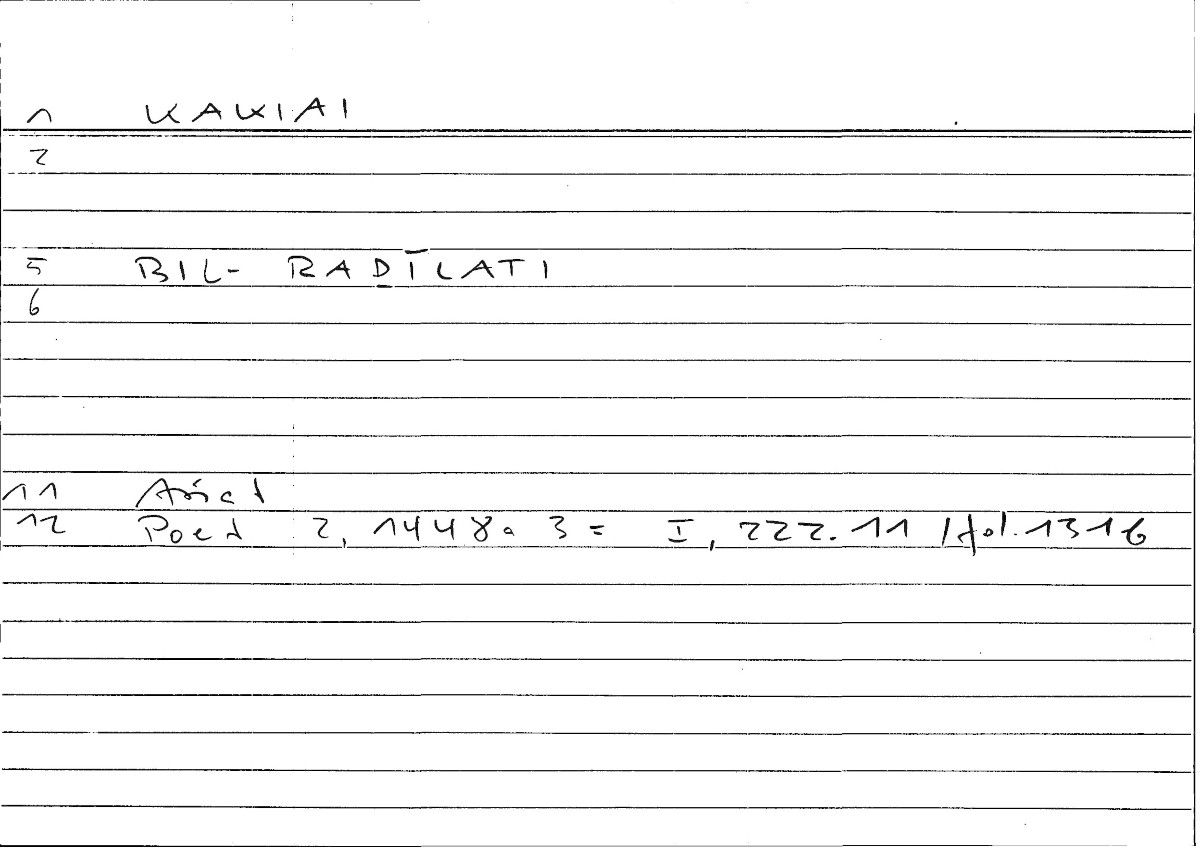 1 KAKIAI
2
5 BIL- RAḎĪLATI
6
11 Arist
12 Poet 2, 1448a 3 = I, 222.11 / fol. 131b